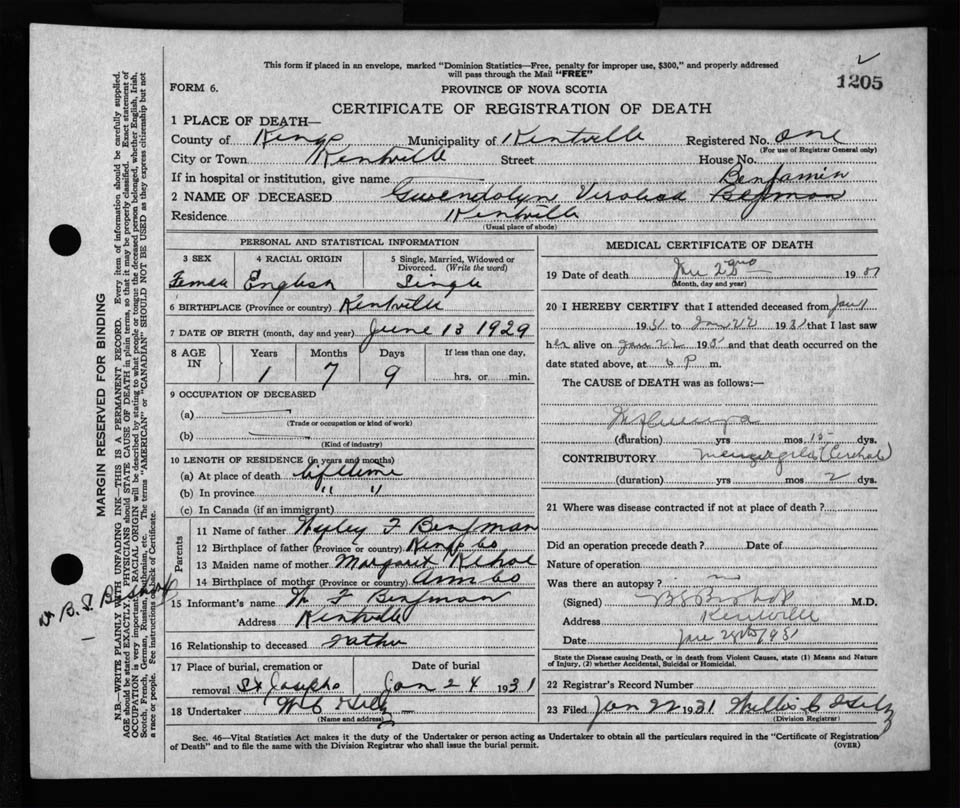 This form if placed in an envelope, marked "Dominion Statistics—Free, penalty for improper use, $300," and properly addressed
will pass through the Mail "FREE"
1205
FORM 6.
PROVINCE OF NOVA SCOTIA
CERTIFICATE OF REGISTRATION OF DEATH
1 PLACE OF DEATH—
County of Kings Municipality of Kentville Registered No. one
(For use of Registrar General only)
City or Town Kentville Street House No.
If in hospital or institution, give name
Benjamin
2 NAME OF DECEASED Gwendolyn
Residence Kentville
(Usual place of abode)
PERSONAL AND STATISTICAL INFORMATION
3 SEX 4 RACIAL ORIGIN 5 Single, Married, Widowed or Divorced. (Write the word)
Female English Single
6 BIRTHPLACE (Province or country) Kentville
7 DATE OF BIRTH (month, day and year) June 13 1929
8 AGE IN Years Months Days If less than one day,
1 7 9 hrs. or min.
9 OCCUPATION OF DECEASED
(a)
(Trade or occupation or kind of work)
(b)
(Kind of industry)
10 LENGTH OF RESIDENCE (in years and months)
(a) At place of death lifetime
(b) In province " "
(c) In Canada (if an immigrant)
Parents
11 Name of father F Benjman
12 Birthplace of father (Province or country) Kings Co
13 Maiden name of mother Margaret Kehoe
14 Birthplace of mother (Province or country) Ann Co
15 Informant's name F Benjman
Address Kentville
16 Relationship to deceased Father
17 Place of burial, cremation or removal St Josephs
Date of burial Jan 24 1931
18 Undertaker
(Name and address)
MEDICAL CERTIFICATE OF DEATH
19 Date of death Jan 22nd 19
(Month, day and year)
20 I HEREBY CERTIFY that I attended deceased from Jan
1931 to Jan 22 1931 that I last saw
her alive on Jan 22 193 and that death occurred on the
date stated above, at 6 P m.
The CAUSE of DEATH was as follows:—
Influenza
(duration) yrs mos. 15 dys.
CONTRIBUTORY
(duration) yrs mos 2 dys.
21 Where was disease contracted if not at place of death?
Did an operation precede death? Date of
Nature of operation
Was there an autopsy? no
(Signed) B S Bishop M.D.
Address Kentville
Date Jan 1931
State the Disease causing Death, or in death from Violent Causes, state (1) Means and Nature
of Injury, (2) whether Accidental, Suicidal or Homicidal.
22 Registrar's Record Number
23 Filed Jan 22 1931
(Division Registrar)
Sec. 46—Vital Statistics Act makes it the duty of the Undertaker or person acting as Undertaker to obtain all the particulars required in the "Certificate of Registration
of Death" and to file the same with the Division Registrar who shall issue the burial permit.
(OVER)
MARGIN RESERVED FOR BINDING
N.B.—WRITE PLAINLY WITH UNFADING INK—THIS IS A PERMANENT RECORD. Every item of information should be carefully supplied.
AGE should be stated EXACTLY. PHYSICIANS should STATE CAUSE OF DEATH in plain terms, so that it may be properly classified. Exact statement of
OCCUPATION is very important. RACIAL ORIGIN will be described by stating to what people or tongue the deceased person belonged, whether English, Irish,
Scotch, French, German, Russian, Ruthenian, etc. The terms "AMERICAN" or "CANADIAN" SHOULD NOT BE USED as they express citizenship but not
a race or people. See instructions on back of Certificate.
Dr B. S. Bishop